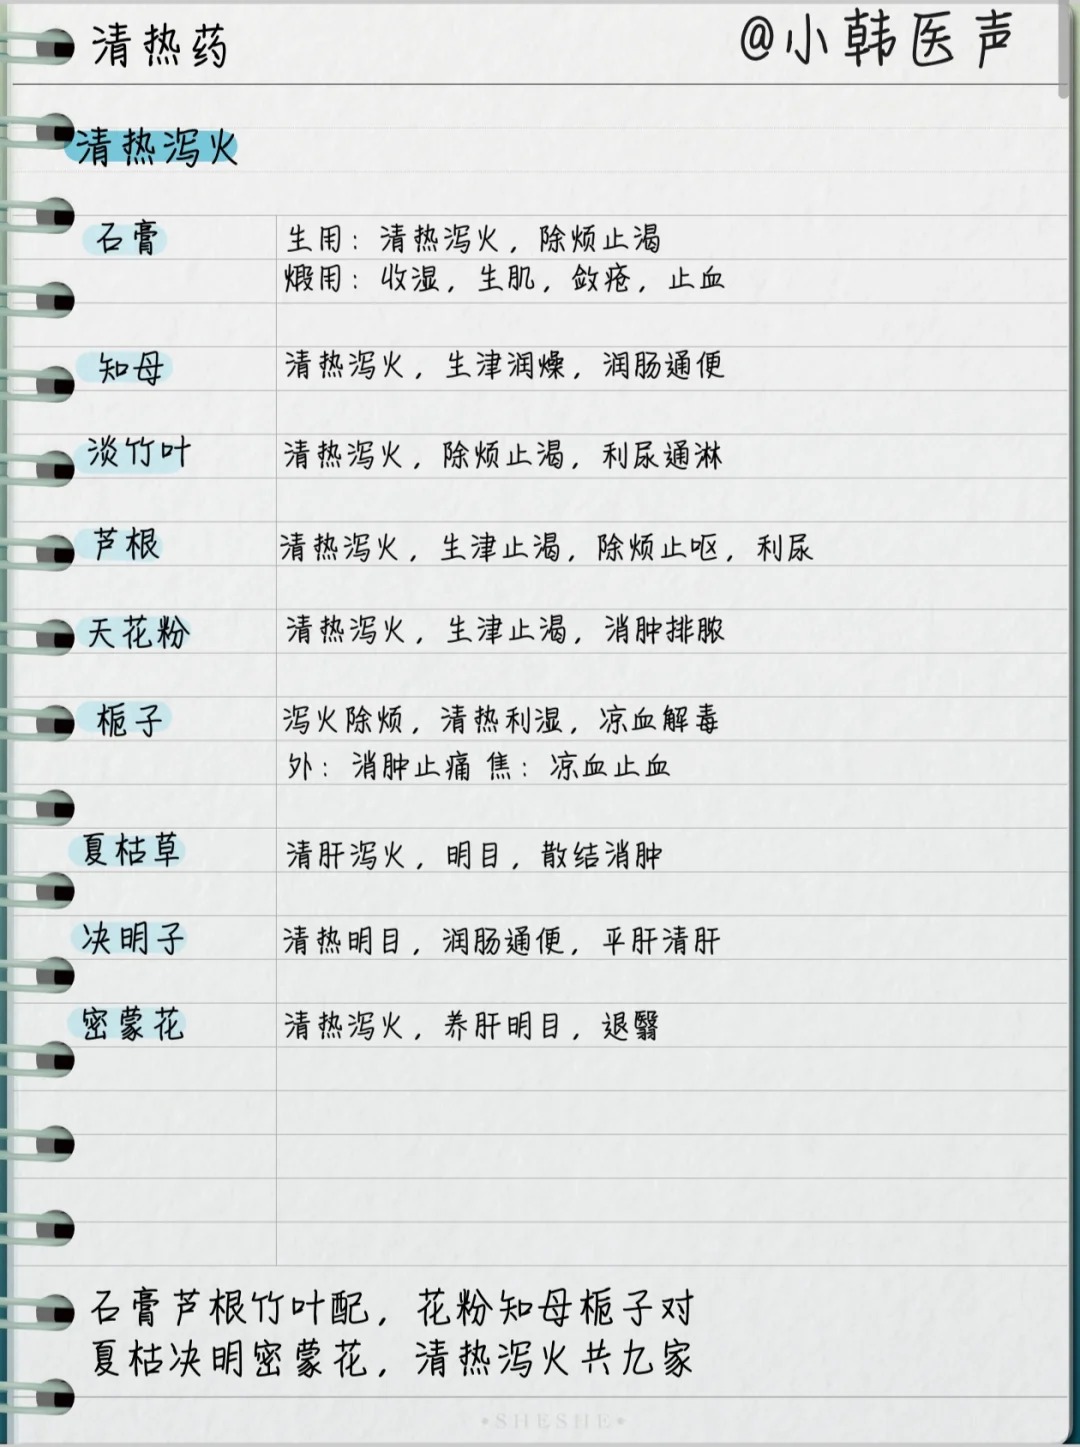 清热药
@小韩医声
清热泻火
石膏 生用：清热泻火，除烦止渴
煅用：收湿，生肌，敛疮，止血
知母 清热泻火，生津润燥，润肠通便
淡竹叶 清热泻火，除烦止渴，利尿通淋
芦根 清热泻火，生津止渴，除烦止呕，利尿
天花粉 清热泻火，生津止渴，消肿排脓
栀子 泻火除烦，清热利湿，凉血解毒
外：消肿止痛 焦：凉血止血
夏枯草 清肝泻火，明目，散结消肿
决明子 清热明目，润肠通便，平肝清肝
密蒙花 清热泻火，养肝明目，退翳
石膏芦根竹叶配，花粉知母栀子对
夏枯决明密蒙花，清热泻火共九家
•SHESHE•